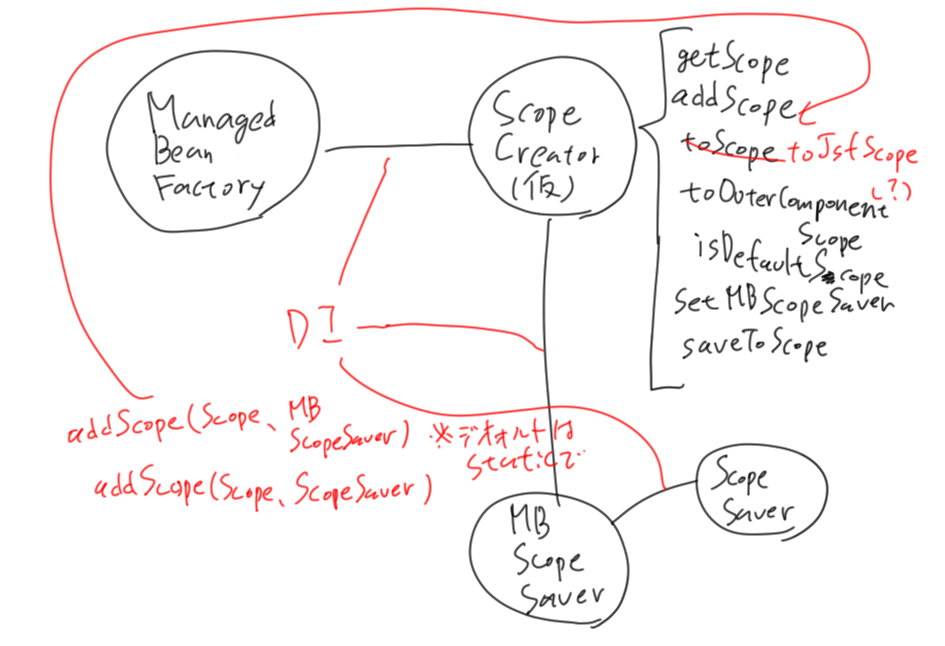 Managed
Bean
Factory
Scope
Creator
(仮)
getScope
addScope
toScope toJsfScope
(?)
toOuterComponent
Scope
isDefaultScope
setMBScopeSaver
saveToScope
DI
addScope(Scope、MB
ScopeSaver) ※デフォルトは
staticで
addScope(Scope、ScopeSaver)
MB
Scope
Saver
Scope
Saver